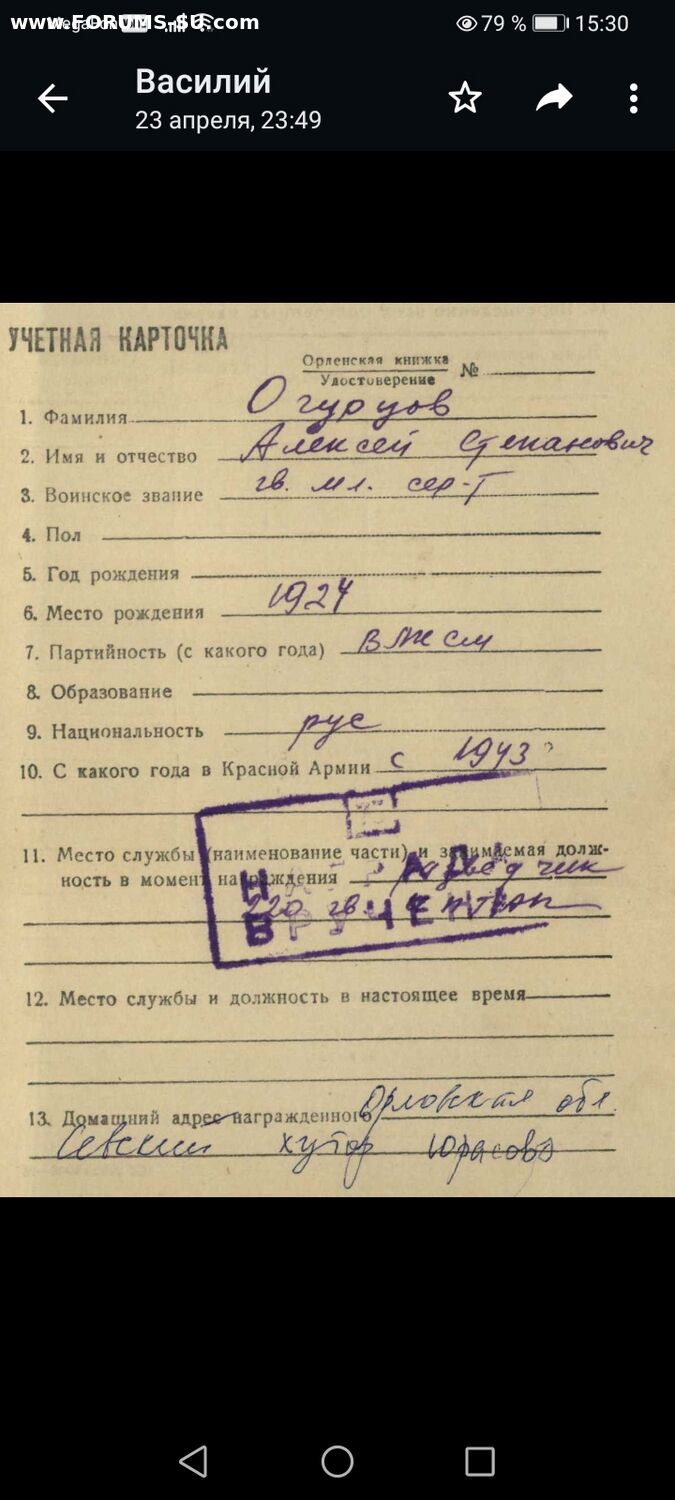 www.FORUMS-SU.com
79 % 15:30
Василий
23 апреля, 23:49
УЧЕТНАЯ КАРТОЧКА
Орденская книжка
Удостоверение №
1. Фамилия Огурцов
2. Имя и отчество Алексей Степанович
3. Воинское звание гв. мл. сер-т
4. Пол
5. Год рождения
6. Место рождения 1924
7. Партийность (с какого года) ВЛКСМ
8. Образование
9. Национальность рус
10. С какого года в Красной Армии с 1943
11. Место службы (наименование части) и занимаемая долж-
ность в момент награждения разведчик
220 гв.
12. Место службы и должность в настоящее время
13. Домашний адрес награжденного Орловская обл.
Севский хутор Юрасово